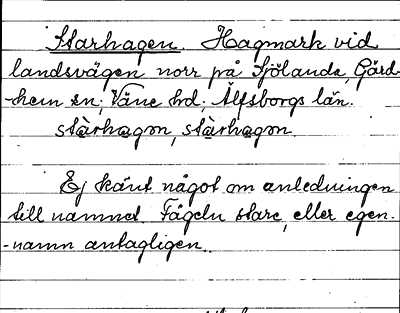 Starhagen. Hagmark vid
landsvägen norr på Sjölanda, Gärd-
-hem sn. Väne hd. Älfsborgs län.
stàrhagən, stàrhagən.
Ej känt något om anledningen
till namnet. Fågeln stare, eller egen-
-namn antagligen.